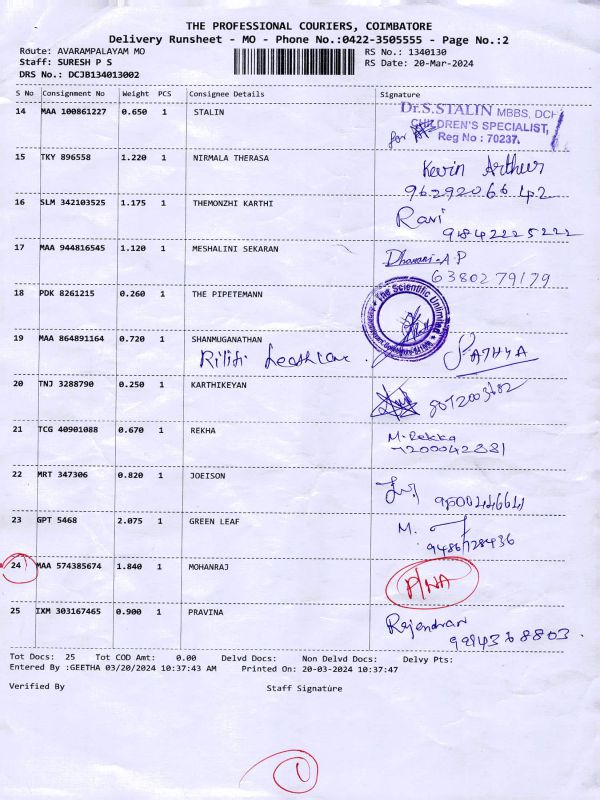 THE PROFESSIONAL COURIERS, COIMBATORE
Delivery Runsheet - MO - Phone No.:0422-3505555 - Page No.:2
Route: AVARAMPALAYAM MO RS No.: 1340130
Staff: SURESH P S RS Date: 20-Mar-2024
DRS No.: DCJB134013002
S No Consignment No Weight PCS Consignee Details Signature
14 MAA 100861227 0.650 1 STALIN
Dr.S.STALIN MBBS, DCH
CHILDREN'S SPECIALIST,
for Reg No : 70237.
15 TKY 896558 1.220 1 NIRMALA THERASA Kevin Arthur
9629206642
16 SLM 342103525 1.175 1 THEMONZHI KARTHI Ravi
9842225222
17 MAA 944816545 1.120 1 MESHALINI SEKARAN Dharani.A.P
6380279179
18 PDK 8261215 0.260 1 THE PIPETEMANN The Scientific Unlimited
19 MAA 864891164 0.720 1 SHANMUGANATHAN
SATHYA
20 TNJ 3288790 0.250 1 KARTHIKEYAN
21 TCG 40901088 0.670 1 REKHA M. Rekka
7200042381
22 MRT 347306 0.820 1 JOEISON
23 GPT 5468 2.075 1 GREEN LEAF M.
9486728436
24 MAA 574385674 1.840 1 MOHANRAJ P/NA
25 IXM 303167465 0.900 1 PRAVINA Rajendran
9994368803
Tot Docs: 25 Tot COD Amt: 0.00 Delvd Docs: Non Delvd Docs: Delvy Pts:
Entered By :GEETHA 03/20/2024 10:37:43 AM Printed On: 20-03-2024 10:37:47
Verified By Staff Signature
1